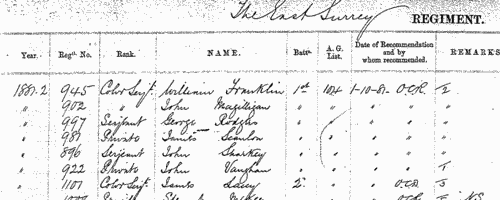 The East Surrey REGIMENT.
Year. Regtl. No. Rank. NAME. Battn. A. G. List. Date of Recommendation and by whom recommended. REMARKS
1881-2 945 Color Serjt. William Franklin 1st 104 1-10-81 O.C.R. 1/2
" 902 " John Magilligan " " " " "
" 997 Serjeant George Rodgers " " " "
" 987 Private James Scanlon " " " "
" 896 Serjeant John Sharkey " " " "
" 922 Private John Vaughan " " " "
" 1101 Color Serjt. James Lacey 2. " " O.C.R.